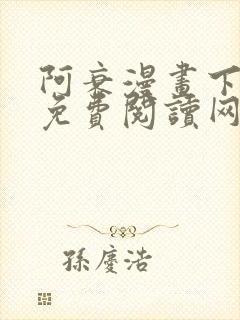 阿衰漫畫下
免費閱讀网
孫慶浩